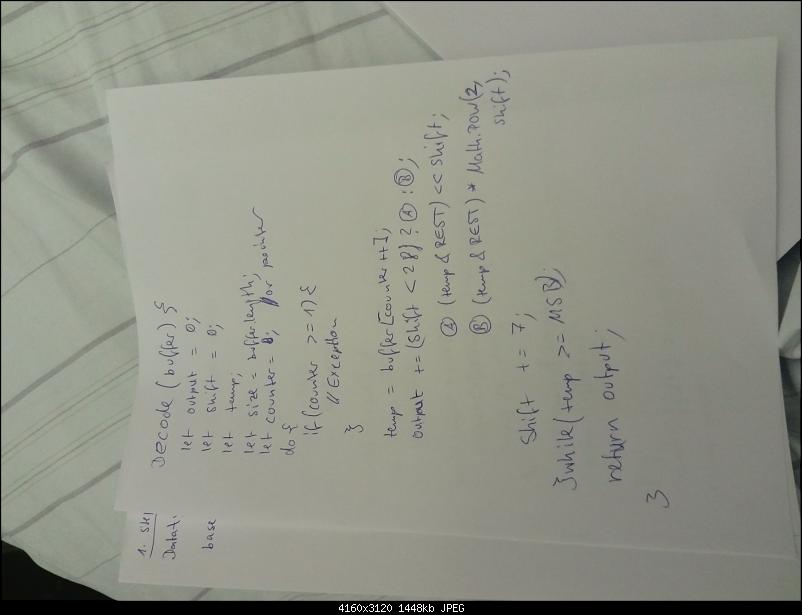 Decode (buffer) {
let output = 0;
let shift = 0;
let temp;
let size = buffer.length;
let counter = 0; // or pointer
do {
if (counter >= 1) {
// Exception
}
temp = buffer [counter++];
output += (shift < 28) ? Ⓐ : Ⓑ;
Ⓐ (temp & REST) << shift;
Ⓑ (temp & REST) * Math.pow(2,
shift);
shift += 7;
} while (temp >= MSB);
return output;
}
1.
base
4160x3120 1448kb JPEG